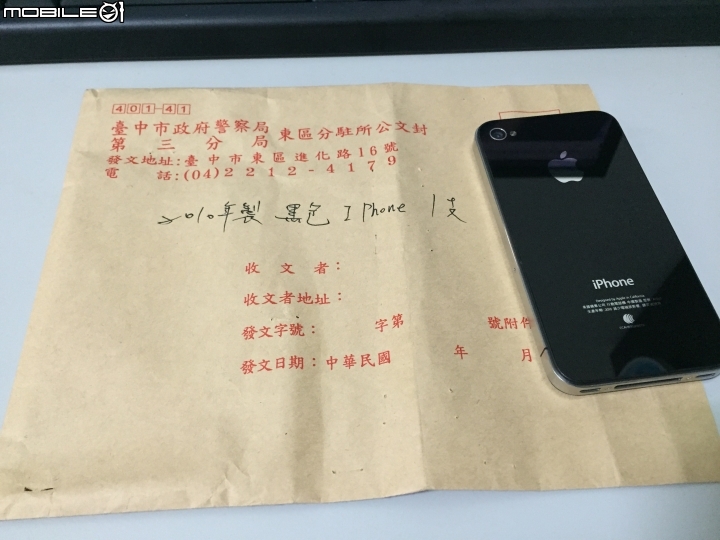 MOBILE01
401-41
臺中市政府警察局
第三分局
東區分駐所公文封
發文地址:臺中市東區進化路16號
電話:(04)2212-4179
2010年製 黑色 I Phone 1支
收文者:
收文者地址:
發文字號: 字第 號附件
發文日期:中華民國 年 月
iPhone
Designed by Apple in California